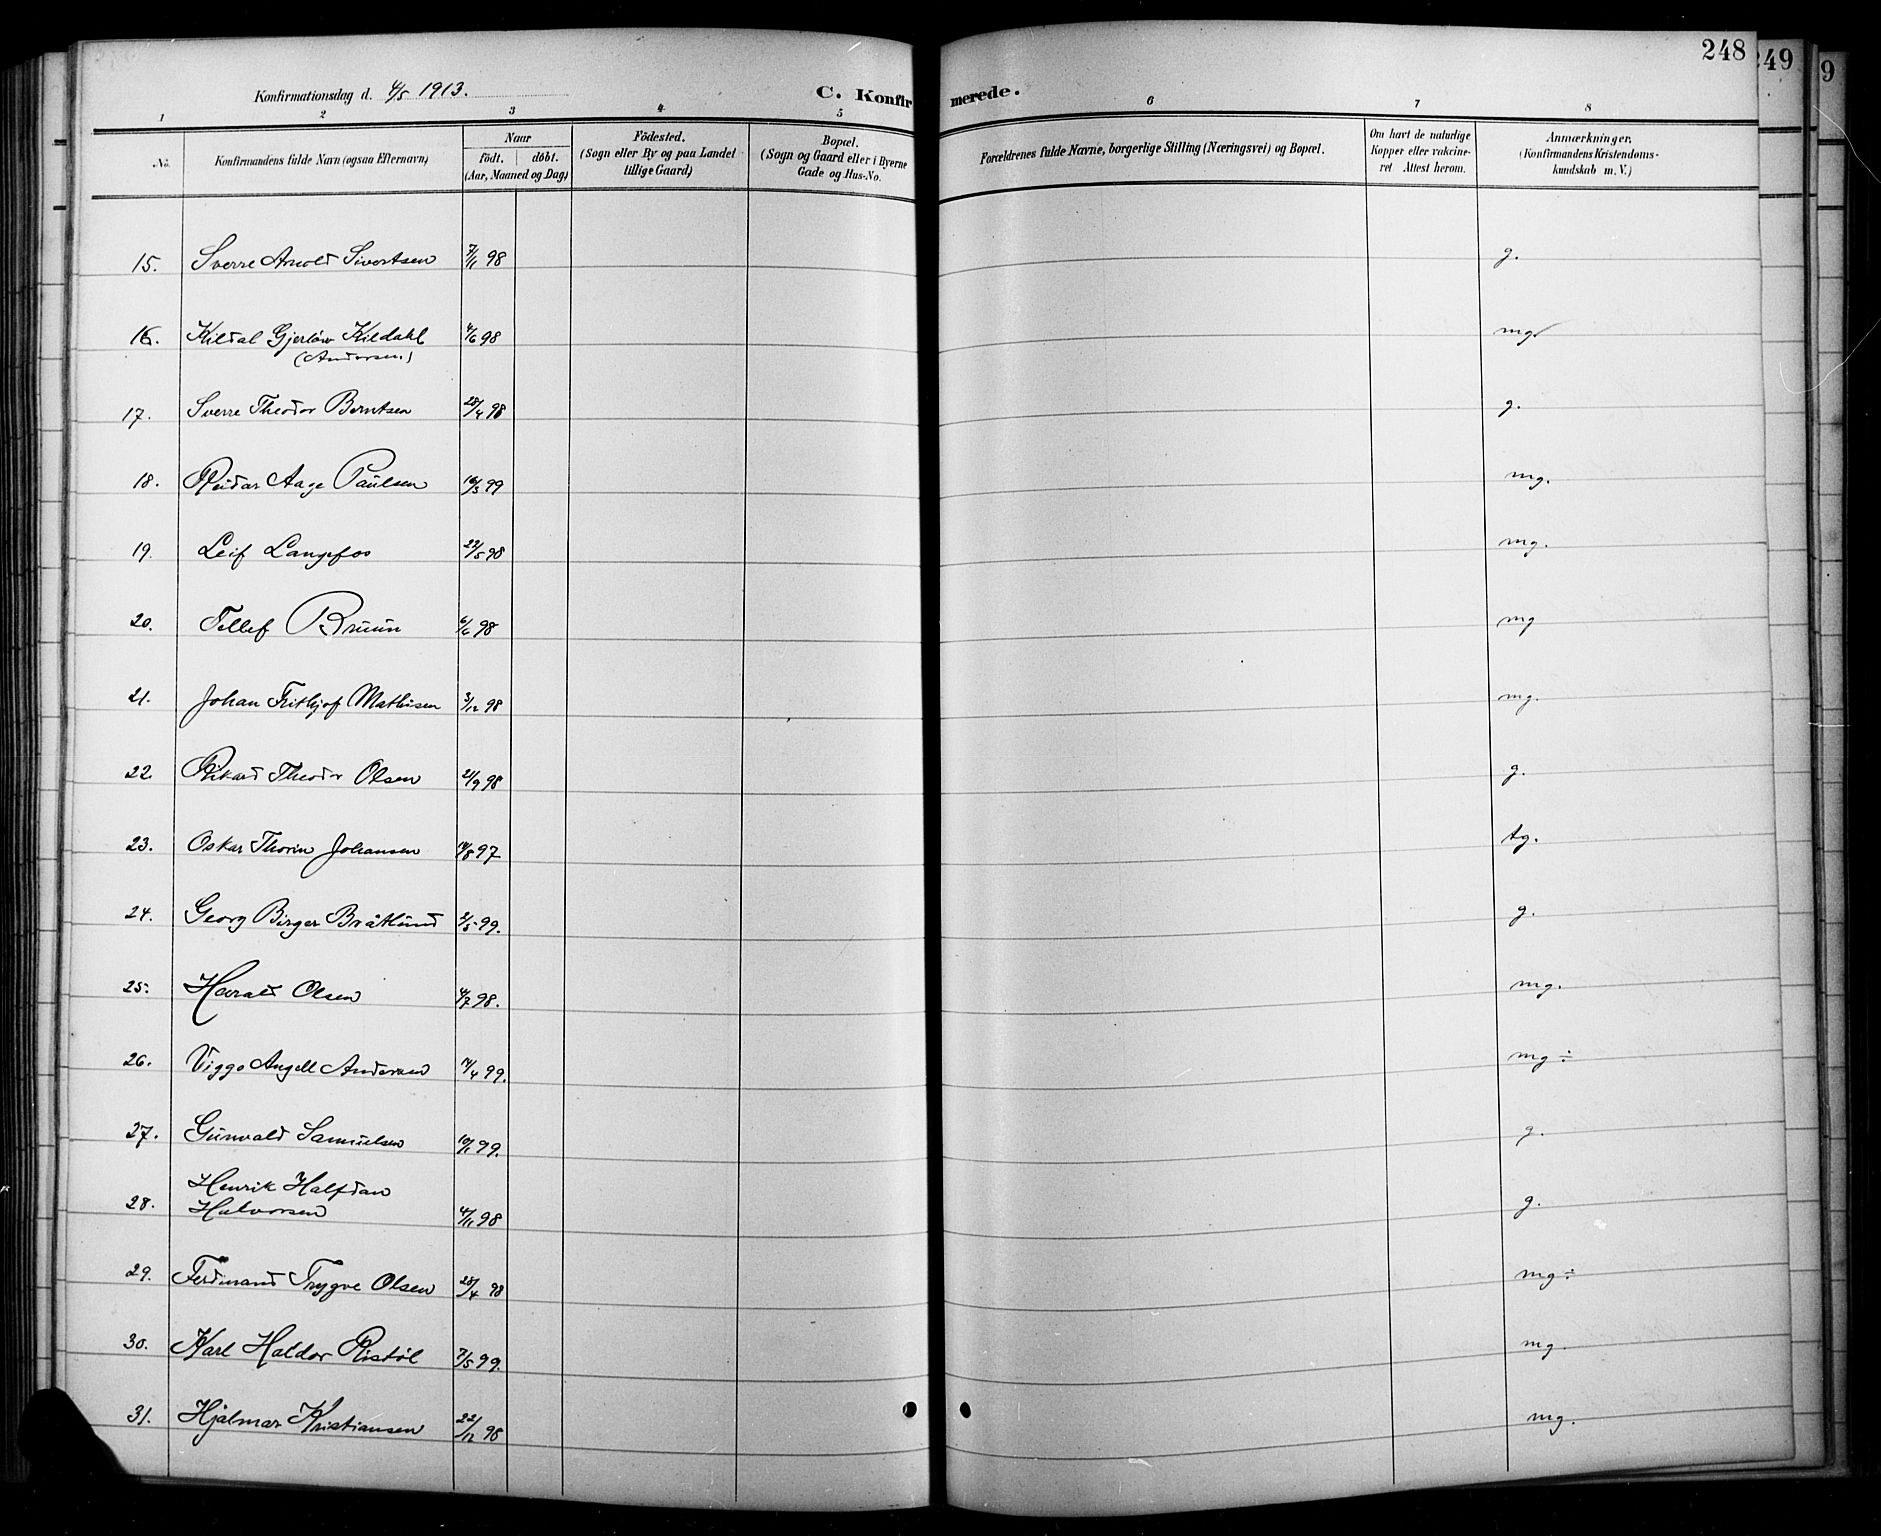 248
249
9
Konfirmationsdag d. 4/5 1913.
C. Konfirmerede.
1 2 3 4 5 6 7 8
No.
Konfirmandens fulde Navn (ogsaa Efternavn)
Naar
födt. döbt.
(Aar, Maaned og Dag)
Födested.
(Sogn eller By og paa Landet
tillige Gaard)
Bopæl.
(Sogn og Gaard eller i Byerne
Gade og Hus-No.
Forældrenes fulde Navne, borgerlige Stilling (Næringsvei) og Bopæl.
Om havt de naturlige
Kopper eller vakcine-
ret Attest herom.
Anmærkninger,
(Konfirmandens Kristendoms-
kundskab m. V.)
15. Sverre Arnold Sivertsen 7/11 98 g.
16. Kildal Gjerløw Kildahl 4/6 98 mg
(Andersen)
17. Sverre Theodor Berntsen 28/4 98 g.
18. Reidar Aage Paulsen 16/3 99 mg.
19. Leif Langefos 22/5 98 mg.
20. Tellef Bruun 6/6 98 mg
21. Johan Frithjof Mathisen 3/12 98 mg.
22. Rikard Theodor Olsen 21/9 98 g.
23. Oskar Thorin Johansen 14/8 97 tg.
24. Georg Birger Bråtlund 2/5 99. g.
25. Harald Olsen 4/7 98. mg.
26. Viggo Angell Andersen 14/4 99. mg ÷
27. Gunvald Samuelsen 10/1 99. g.
28. Henrik Halfdan
Halvorsen 4/11 98 g.
29. Ferdinand Trygve Olsen 28/4 98 mg ÷
30. Karl Haldor Ristøl 7/5 99. mg.
31. Hjalmar Kristiansen 22/12 98 mg.